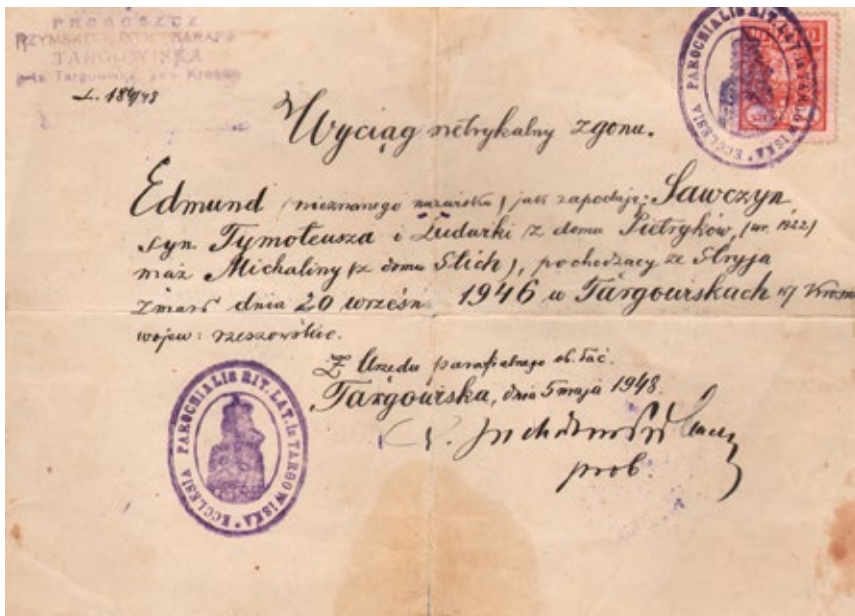 PROBOSZCZ
RZYMSKO
TARGOWISKA
p-ta Targowiska
L. 184/48
ECCLESIA PAROCHIALIS RIT. LAT. in TARGOWISKA
Wyciąg metrykalny zgonu.
Edmund (nieznanego nazwiska) jak zapodaje: Sawczyn
syn Tymoteusza i Ludwiki z domu Pietryków, (ur. 1922)
mąż Michaliny (z domu Stich), pochodzący ze Stryja
zmarł dnia 20 wrześn. 1946 w Targowiskach
wojew: rzeszowskie.
Z Urzędu parafialnego ob. łać.
Targowiska, dnia 5 maja 1948.
prob.
ECCLESIA PAROCHIALIS RIT. LAT. in TARGOWISKA